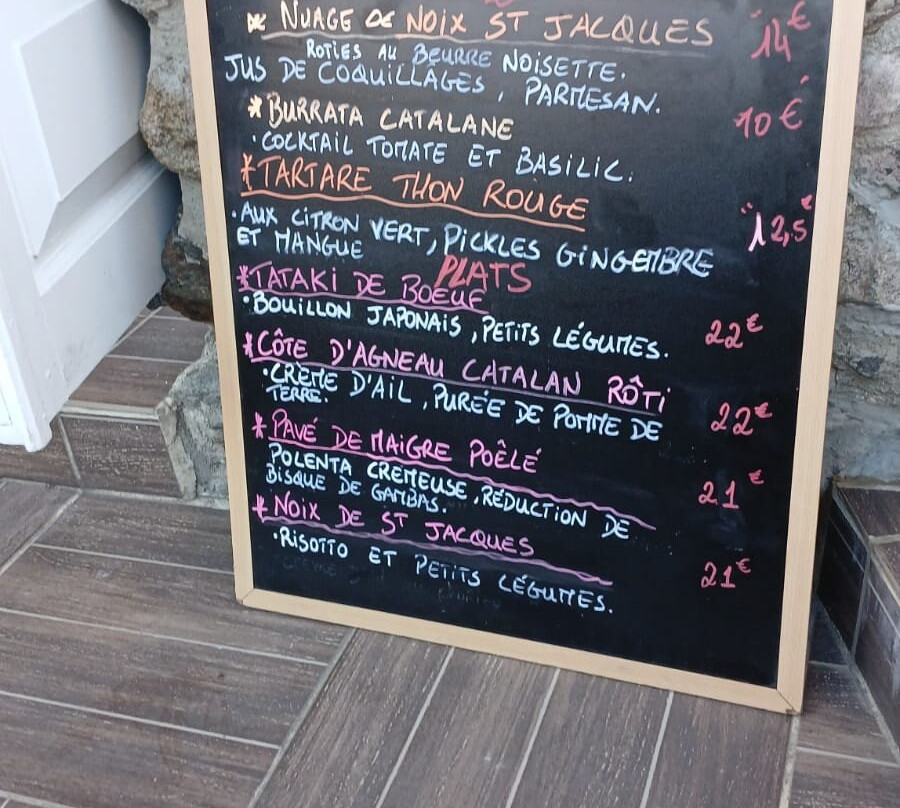 * NUAGE DE NOIX ST JACQUES 14€
ROTIES AU BEURRE NOISETTE.
JUS DE COQUILLAGES, PARMESAN.
* BURRATA CATALANE 10€
· COCKTAIL TOMATE ET BASILIC.
* TARTARE THON ROUGE 12,5€
· AUX CITRON VERT, PICKLES GINGEMBRE
ET MANGUE
PLATS
* TATAKI DE BOEUF
· BOUILLON JAPONAIS, PETITS LÉGUMES. 22€
* CÔTE D'AGNEAU CATALAN RÔTI
· CRÈME D'AIL, PURÉE DE POMME DE 22€
TERRE.
* PAVÉ DE MAIGRE POÊLÉ
POLENTA CREMEUSE, RÉDUCTION DE 21€
BISQUE DE GAMBAS.
* NOIX DE ST JACQUES
· RISOTTO ET PETITS LÉGUMES. 21€